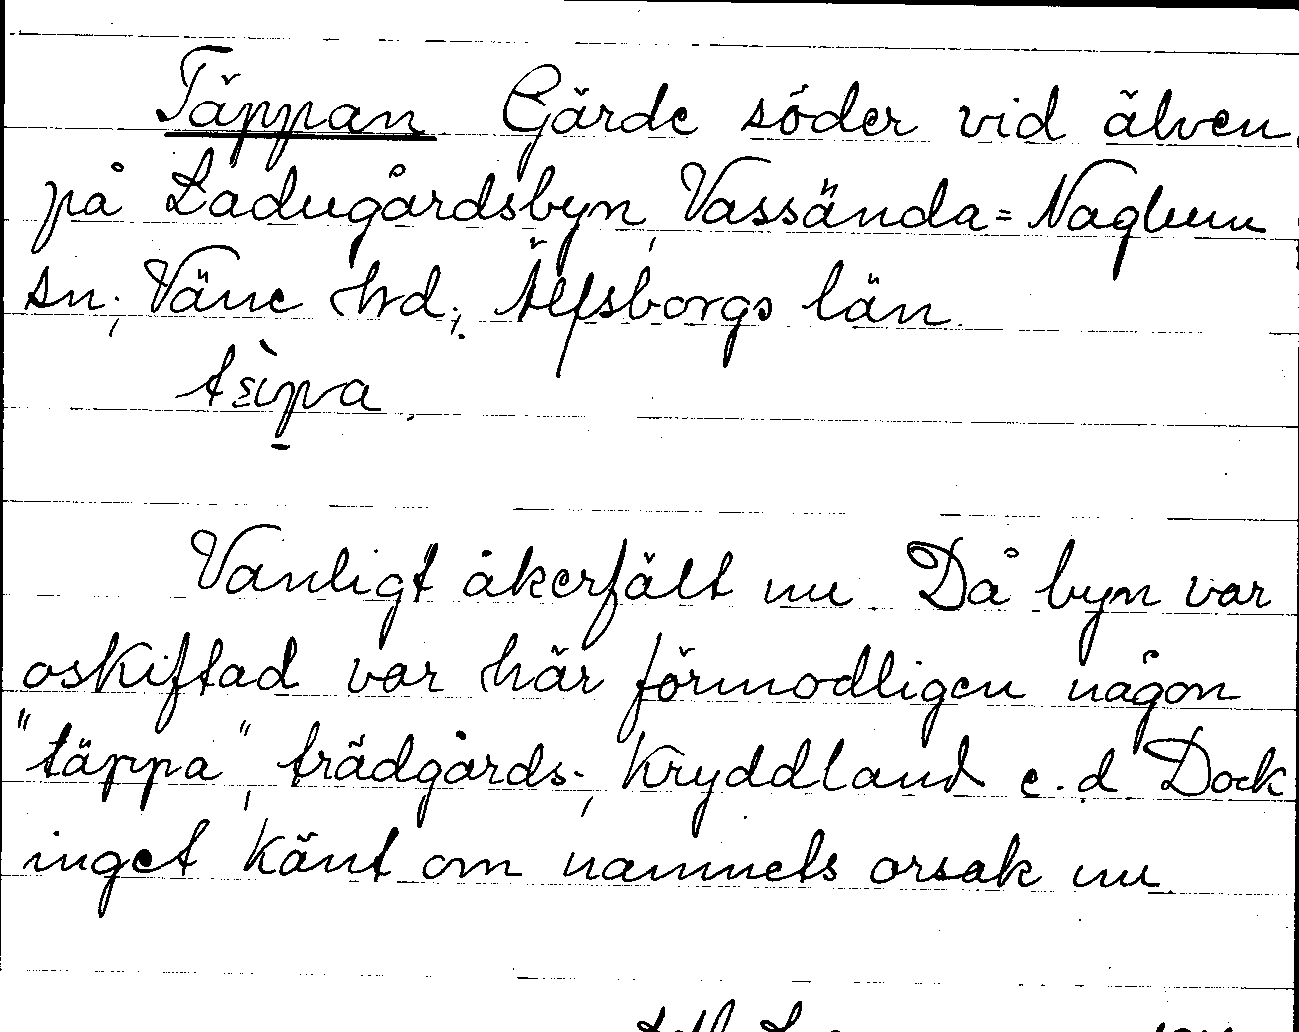 Täppan Gärde söder vid älven
på Ladugårdsbyn, Vassända=Naglum
sn; Väne hrd; Älfsborgs län.
Vanligt åkerfält nu. Då byn var
oskiftad var här förmodligen någon
"täppa", trädgårds-, kryddland e.d. Dock
inget känt om namnets orsak nu.